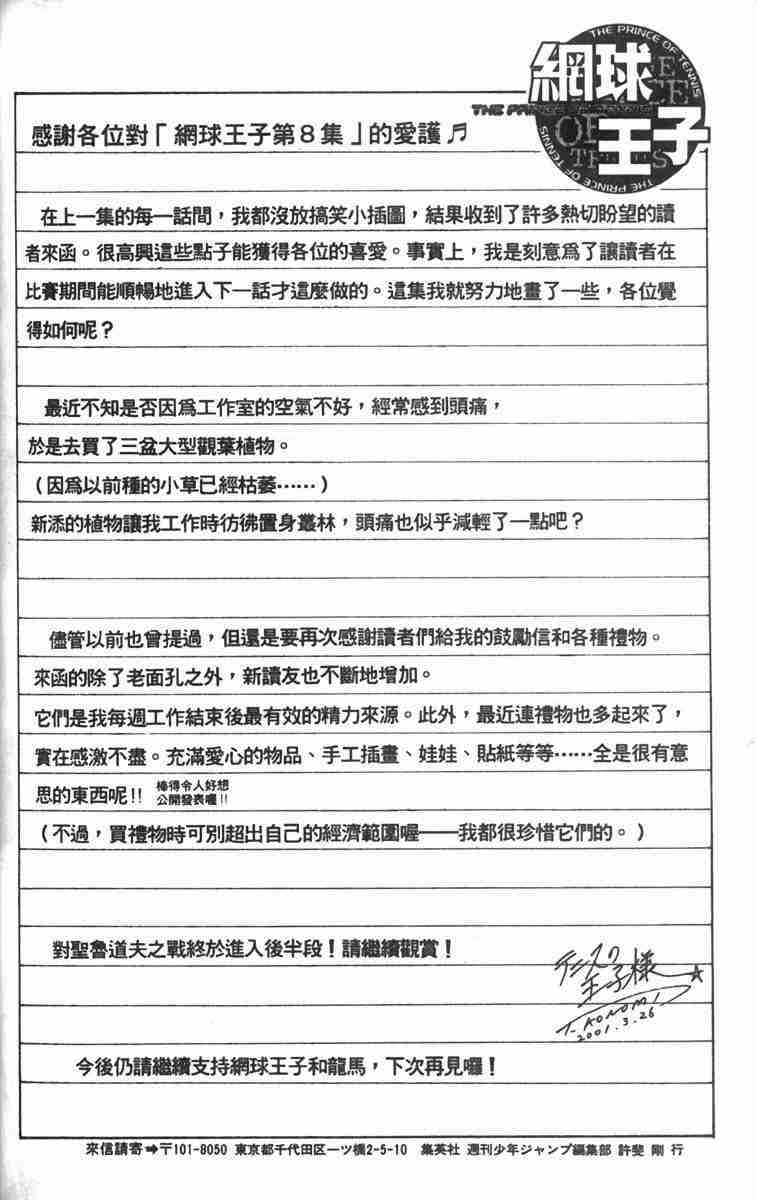 THE PRINCE OF TENNIS
網球
王子
THE PRINCE OF TENNIS
感謝各位對「網球王子第8集」的愛護♬
在上一集的每一話間，我都沒放搞笑小插圖，結果收到了許多熱切盼望的讀
者來函。很高興這些點子能獲得各位的喜愛。事實上，我是刻意為了讓讀者在
比賽期間能順暢地進入下一話才這麼做的。這集我就努力地畫了一些，各位覺
得如何呢？
最近不知是否因為工作室的空氣不好，經常感到頭痛，
於是去買了三盆大型觀葉植物。
（因為以前種的小草已經枯萎……）
新添的植物讓我工作時彷彿置身叢林，頭痛也似乎減輕了一點吧？
儘管以前也曾提過，但還是要再次感謝讀者們給我的鼓勵信和各種禮物。
來函的除了老面孔之外，新讀友也不斷地增加。
它們是我每週工作結束後最有效的精力來源。此外，最近連禮物也多起來了，
實在感激不盡。充滿愛心的物品、手工插畫、娃娃、貼紙等等……全是很有意
思的東西呢!!
棒得令人好想
公開發表喔!!
（不過，買禮物時可別超出自己的經濟範圍喔——我都很珍惜它們的。）
對聖魯道夫之戰終於進入後半段！請繼續觀賞！
テニスの
王子様☆
T. KONOMI
2001.3.26
今後仍請繼續支持網球王子和龍馬，下次再見囉！
來信請寄➡〒101-8050 東京都千代田区一ツ橋2-5-10 集英社 週刊少年ジャンプ編集部 許斐 剛 行